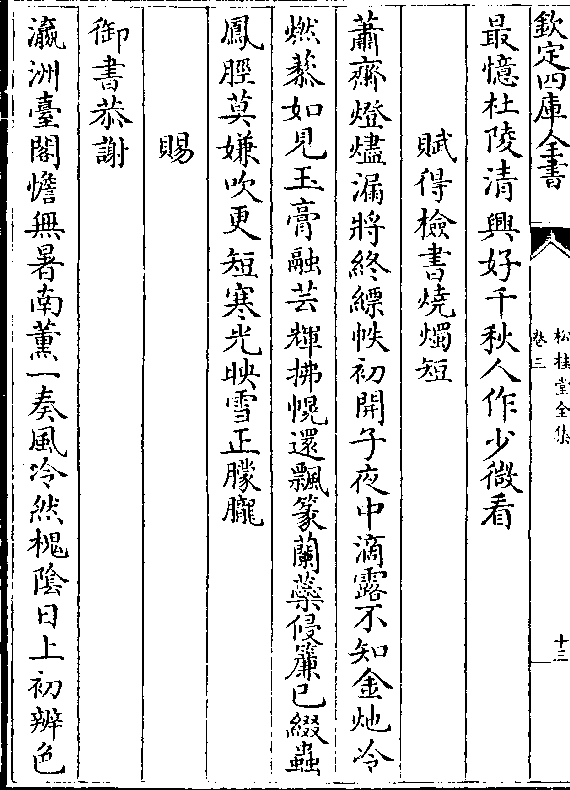 欽定四庫全書
松桂堂全集
卷三
十三
最憶杜陵清興好千秋人作少微看
賦得檢書燒燭短
蕭齋燈燼漏將終縹帙初開子夜中滴露不知金灺冷
燃藜如見玉膏融芸輝拂幌還飄篆蘭蘂侵簾已綴蟲
鳳脛莫嫌吹更短寒光映雪正朦朧
賜
御書恭謝
瀛洲臺閣憺無暑南薰一奏風泠然槐陰日上初辨色